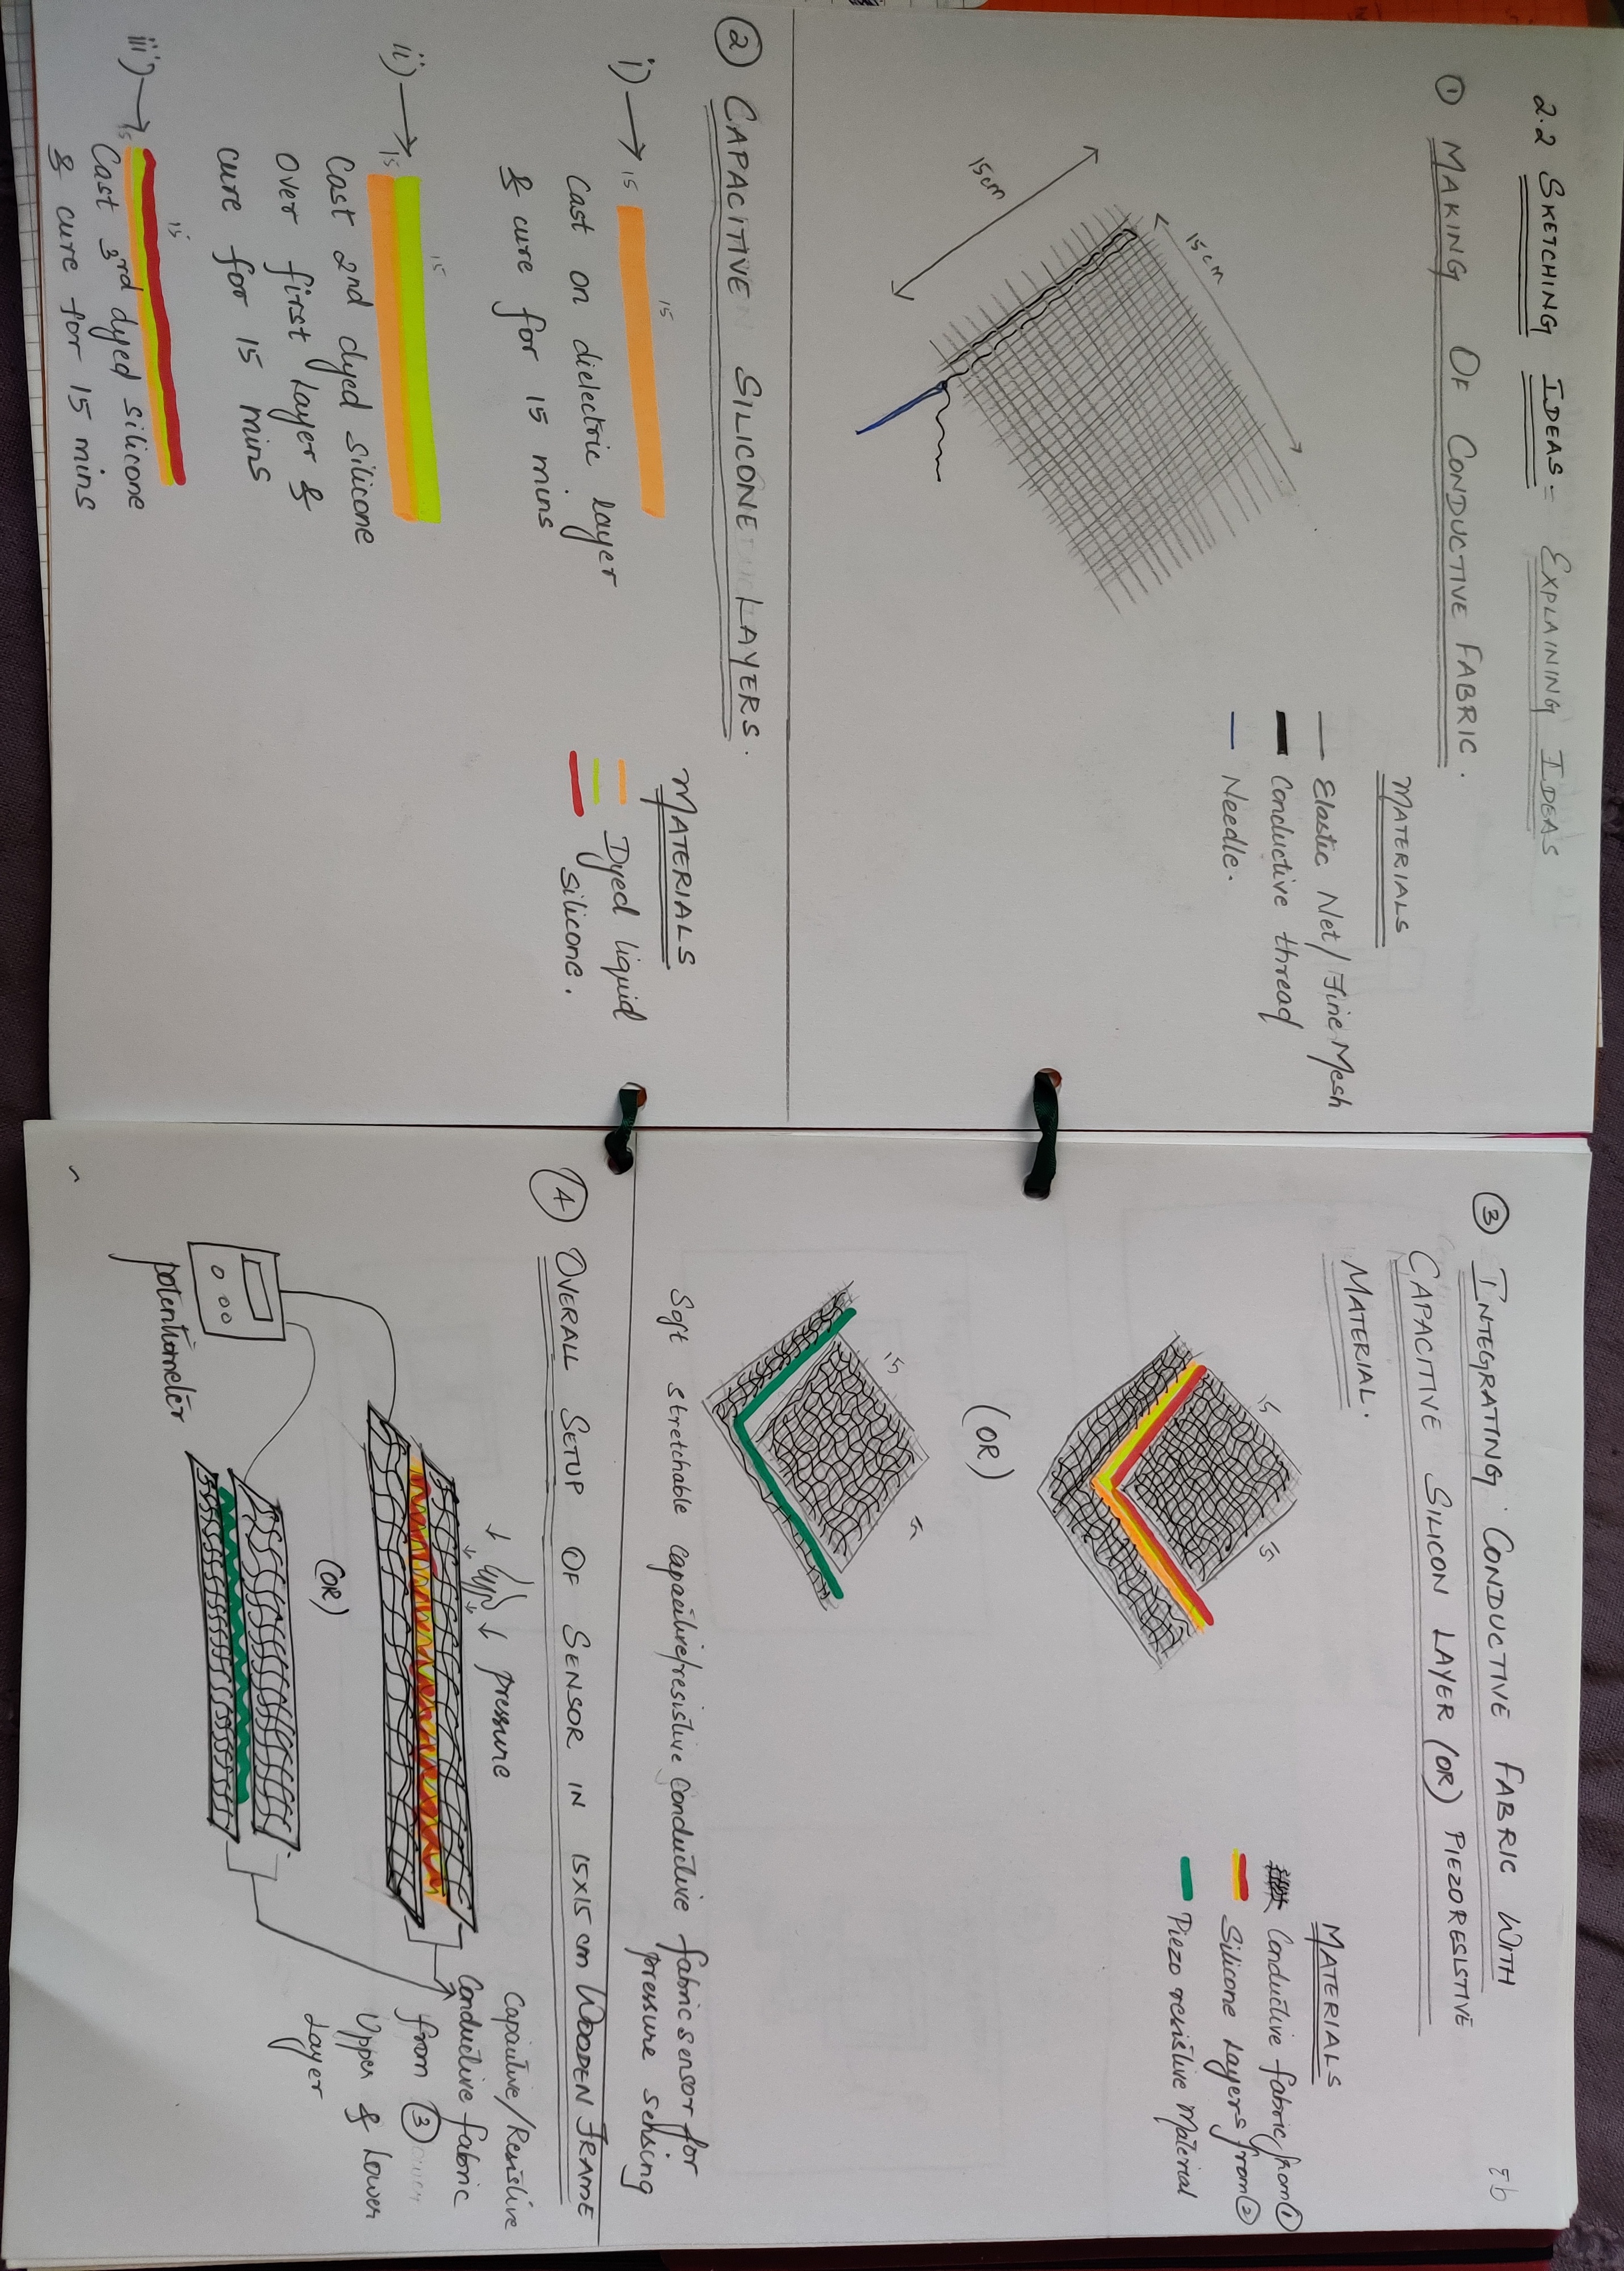 2.2 SKETCHING IDEAS - EXPLAINING IDEAS
① MAKING OF CONDUCTIVE FABRIC.
15cm
15cm
MATERIALS
Elastic Net/Fine Mesh
Conductive thread
Needle.
② CAPACITIVE SILICONE LAYERS.
i) → 15
15
Cast on dielectric layer
& cure for 15 mins
ii) → 15
15
Cast 2nd dyed silicone
Over first layer &
cure for 15 mins
iii) → 15
15
Cast 3rd dyed silicone
& cure for 15 mins
MATERIALS
Dyed liquid
silicone.
③ INTEGRATING CONDUCTIVE FABRIC WITH
CAPACITIVE SILICON LAYER (OR) PIEZORESISTIVE
MATERIAL.
15
15
(OR)
15
MATERIALS
Conductive fabric from ①
Silicone Layers from ②
Piezo resistive Material
Soft stretchable capacitive/resistive Conductive fabric sensor for
pressure sensing
④ OVERALL SETUP OF SENSOR IN 15X15 cm WOODEN FRAME
pressure
(OR)
potentiometer
Capacitive/Resistive
Conductive fabric
from ③
Upper & Lower
Layer